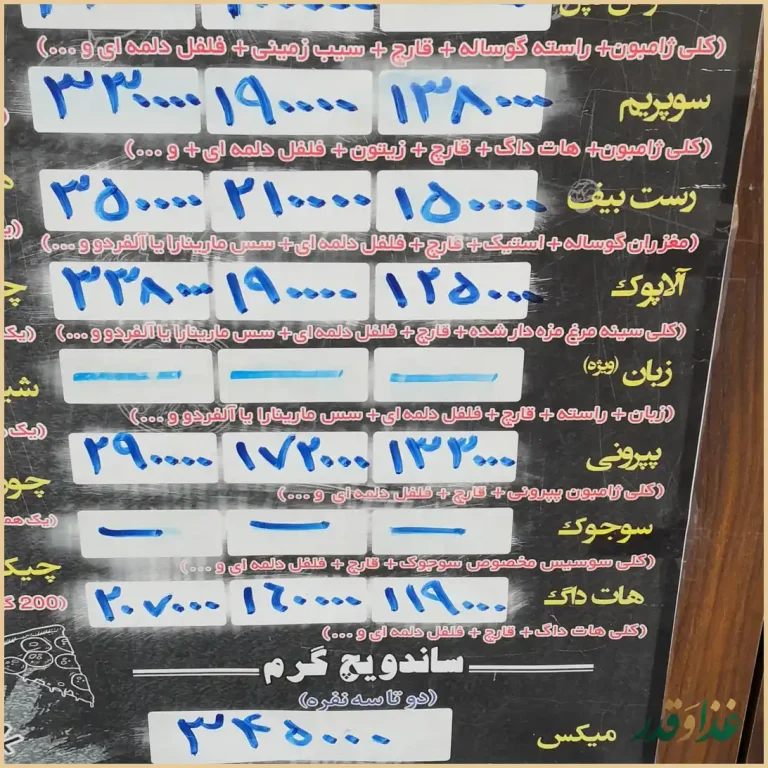 (کلی ژامبون+ راسته گوساله + قارچ + سیب زمینی + فلفل دلمه ای + و ...)
سوپریم ۱۳۸۰۰۰ ۱۹۰۰۰۰ ۲۳۰۰۰۰
(کلی ژامبون+ هات داگ + قارچ + زیتون + فلفل دلمه ای + و ...)
رست بیف ۱۵۰۰۰۰ ۲۱۰۰۰۰ ۳۵۰۰۰۰
(مغز ران گوساله + استیک + قارچ + فلفل دلمه ای + سس مارینارا یا آلفردو و ...)
آلاپوک ۱۲۵۰۰۰ ۱۹۰۰۰۰ ۳۳۸۰۰۰
(کلی سینه مرغ مزه دار شده + قارچ + فلفل دلمه ای + سس مارینارا یا آلفردو و ...)
زبان (ویژه)
(زبان + راسته + قارچ + فلفل دلمه ای + سس مارینارا یا آلفردو و ...)
پپرونی ۱۳۳۰۰۰ ۱۷۲۰۰۰ ۲۹۰۰۰۰
(کلی ژامبون پپرونی + قارچ + فلفل دلمه ای و ...)
سوجوک
(کلی سوسیس مخصوص سوجوک + قارچ + فلفل دلمه ای و ...)
هات داگ ۱۱۹۰۰۰ ۱۶۰۰۰۰ ۲۰۷۰۰۰
(کلی هات داگ + قارچ + فلفل دلمه ای و ...)
(200
ساندویچ گرم
(دو تا سه نفره)
میکس ۳۴۵۰۰۰
غذا و قدر